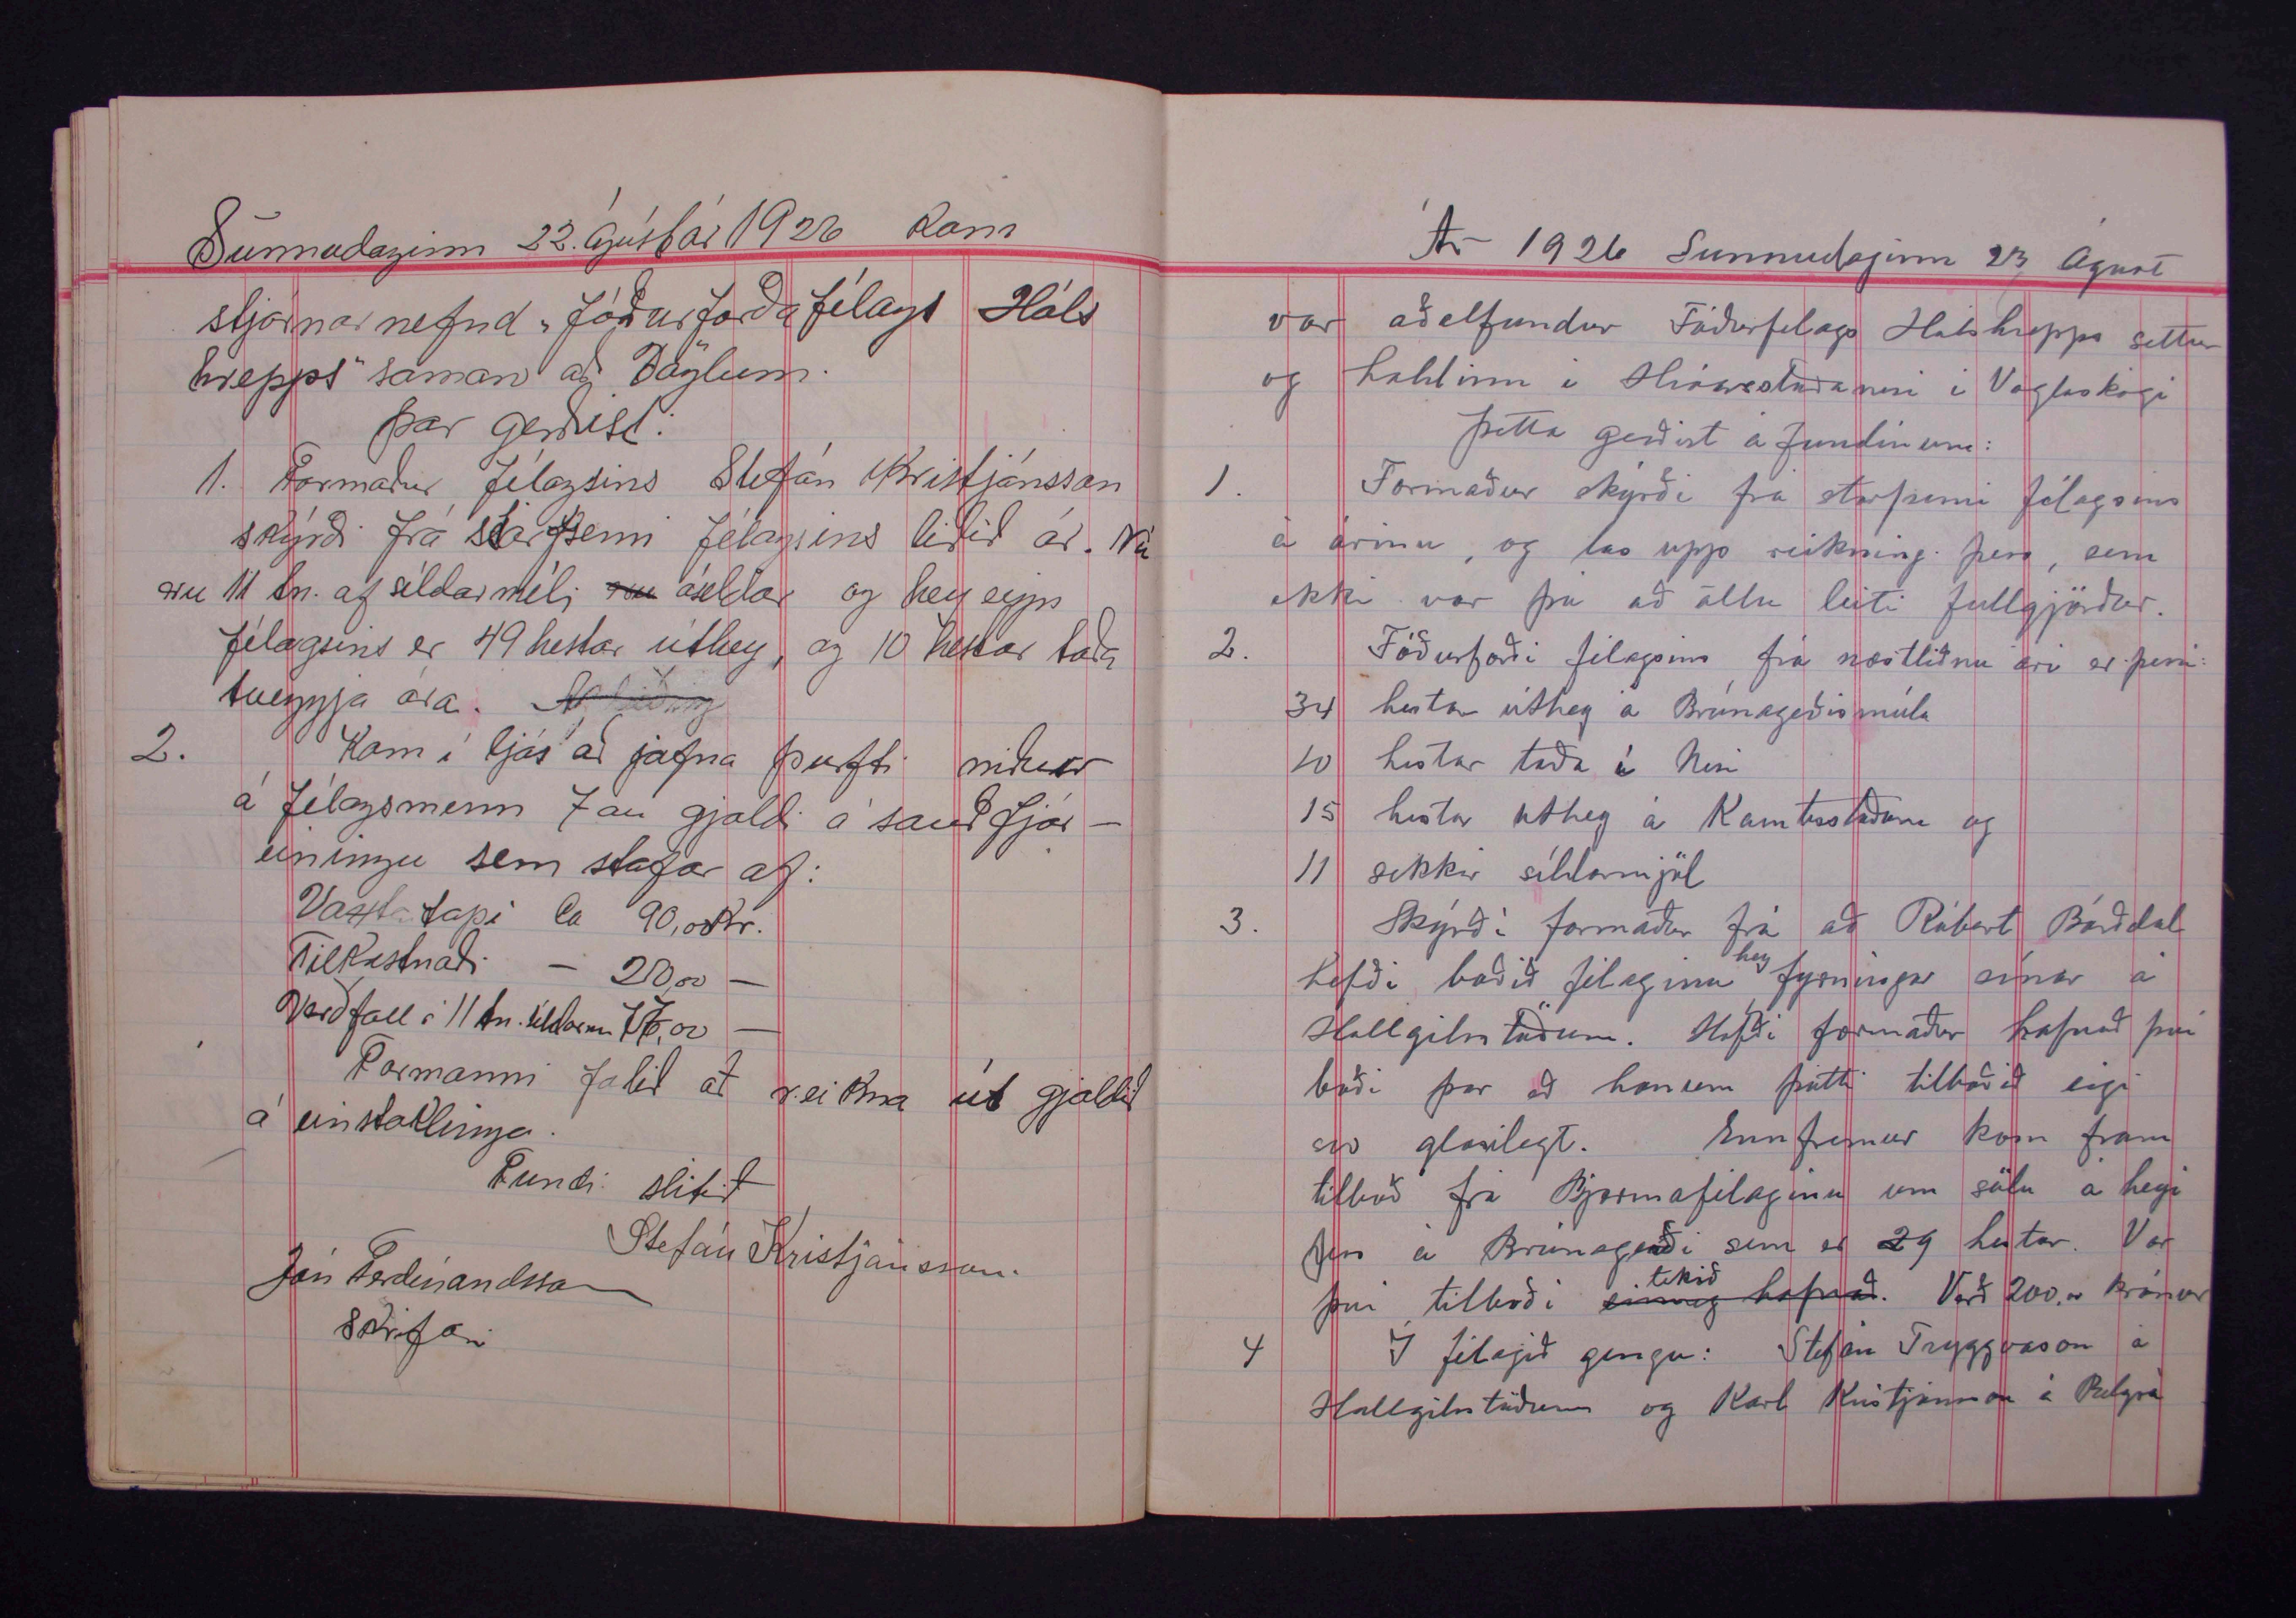 Sunnudaginn 22. ágúst ár 1926 kom
stjórnarnefnd „Fóðurforðafélags Háls
hrepps" saman að Döglum.
Þar gerðist:
1. Formaður félagsins Stefán Kristjánsson
skýrði frá starfsemi félagsins liðið ár. Nú
eru 11 tn. af síldarméli óseldar og hey eign
félagsins er 49 hestar úthey, og 10 hestar taða
tveggja ára.
2. Kom í ljós að jafna þurfti niður
á félagsmenn 7 au gjaldi á sauðfjár-
einingu sem stafar af:
Vaxtatapi Ca 90,00 Kr.
Tilkostnaði - 20,00 -
Verðfall á 11 tn. síldarm 77,00 -
Formanni falið að reikna út gjaldið
á einstaklinga.
Fundi slitið
Stefán Kristjánsson.
Jón Ferdínandsson
skrifari
Ár 1926 Sunnudaginn 23 Ágúst
var aðalfundur Fóðurfelags Hálshrepps settur
og haldinn í Hróarsstaðanesi í Vaglaskógi
Þetta gerðist á fundinum:
1. Formaður skýrði frá starfsemi félagsins
á árinu, og las upp reikning þess, sem
ekki var þá að öllu leiti fullgjörður.
2. Fóðurforði félagsins frá næstliðnu ári er þessi:
34 hestar úthey á Brúnagerðismúla
10 hestar taða í Nesi
15 hestar úthey á Kambsstöðum og
11 sekkir síldarmjöl
3. Skýrði formaður frá að Róbert Bárðdal
hefði boðið félaginu hey fyrningar sínar á
Hallgilsstöðum. Hafði formaður hafnað því
boði þar eð honum þótti tilboðið eigi
svo glæsilegt. Ennfremur kom fram
tilboð frá Bjarmafélaginu um sölu á heyi
þess á Brúnagerði sem er 29 hestar. Var
því tilboði tekið einnig hafnað. Verð 200.00 krónur
4 Í félagið gengu: Stefán Tryggvason á
Hallgilsstöðum og Karl Kristjánsson á Belgsá